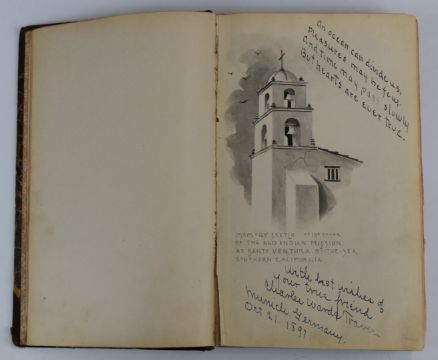 An ocean can divide us,
pleasures may be few,
And time may pass slowly
But hearts are ever true.
MEMORY SKETCH
OF THE OLD INDIAN MISSION
AT SANTA VENTURA BY THE SEA
SOUTHERN CALIFORNIA
With the best wishes of
your true friend
Charles Warde Traver
Munich Germany.
Oct 21. 1897